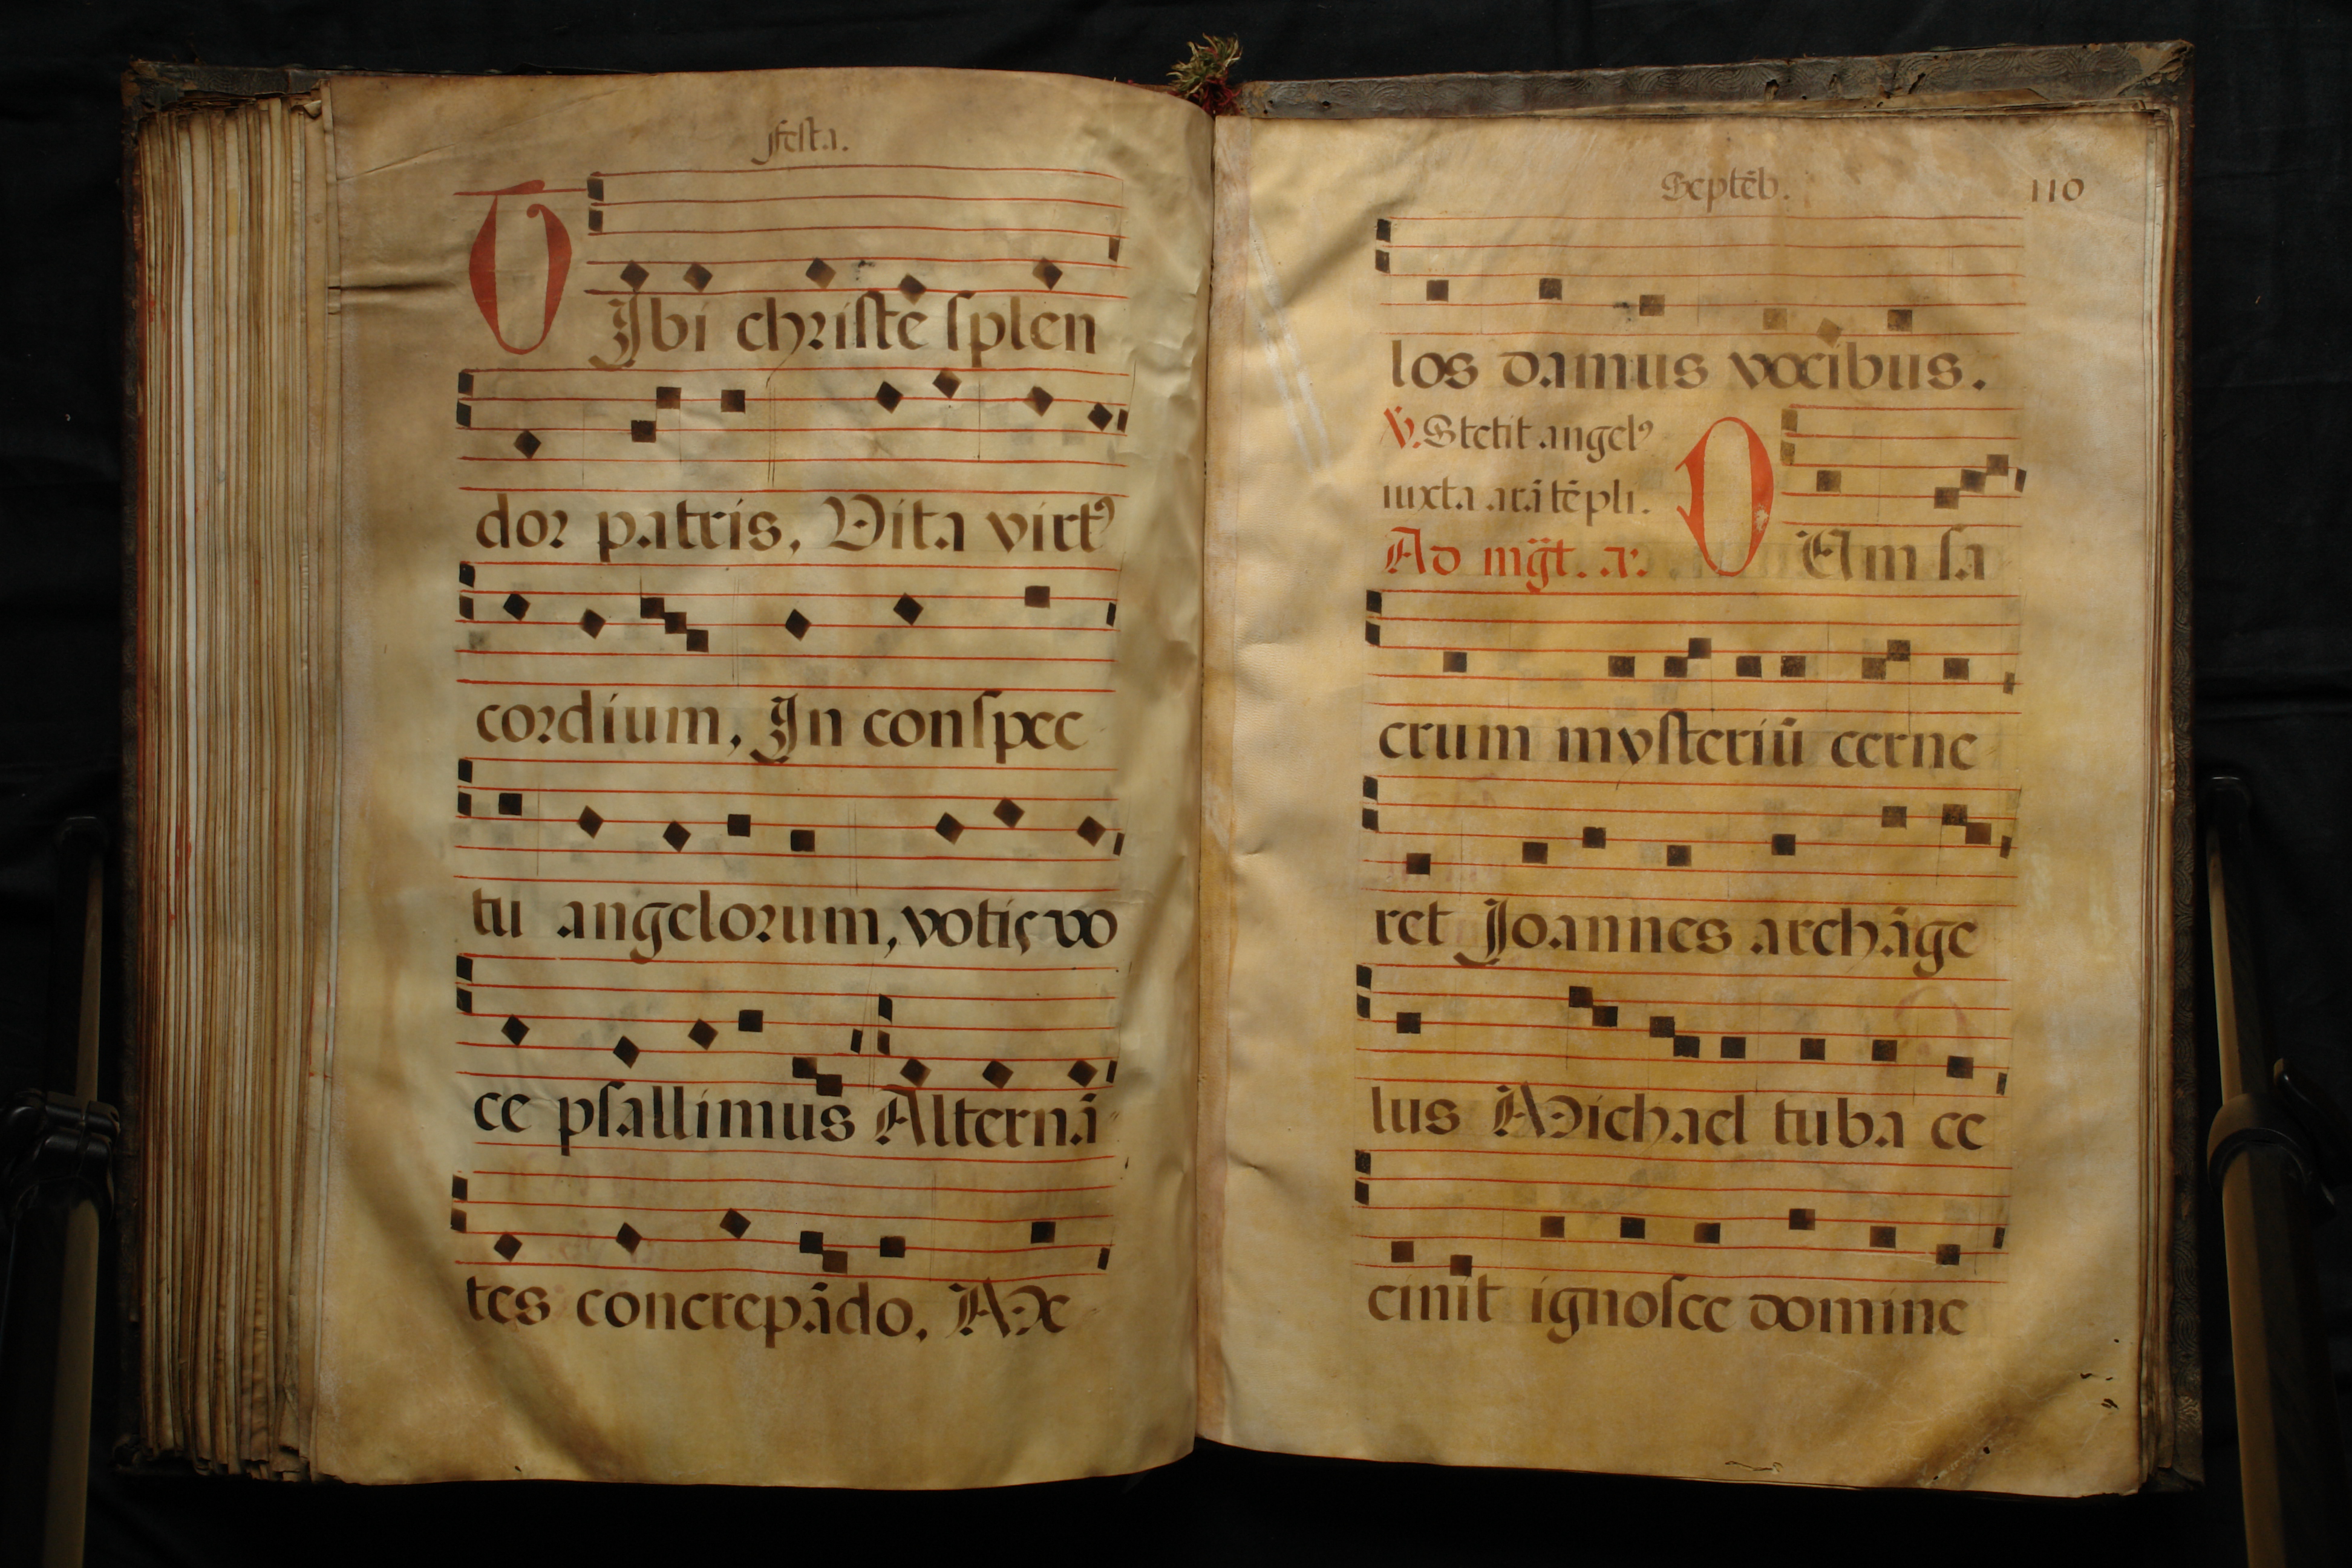 Festa.
TIbi christe splen
dor patris, Vita virtꝰ
cordium, In conspec
tu angelorum, votis vo
ce psallimus Alternā
tes concrepādo, Me
Septēb. 110
los damus vocibus.
℣. Stetit angelꝰ
iuxta arā tēpli.
Ad mg̃t. a.
DUm sa
crum mysteriū cerne
ret Joannes archāge
lus Michael tuba ce
cinit ignosce domine